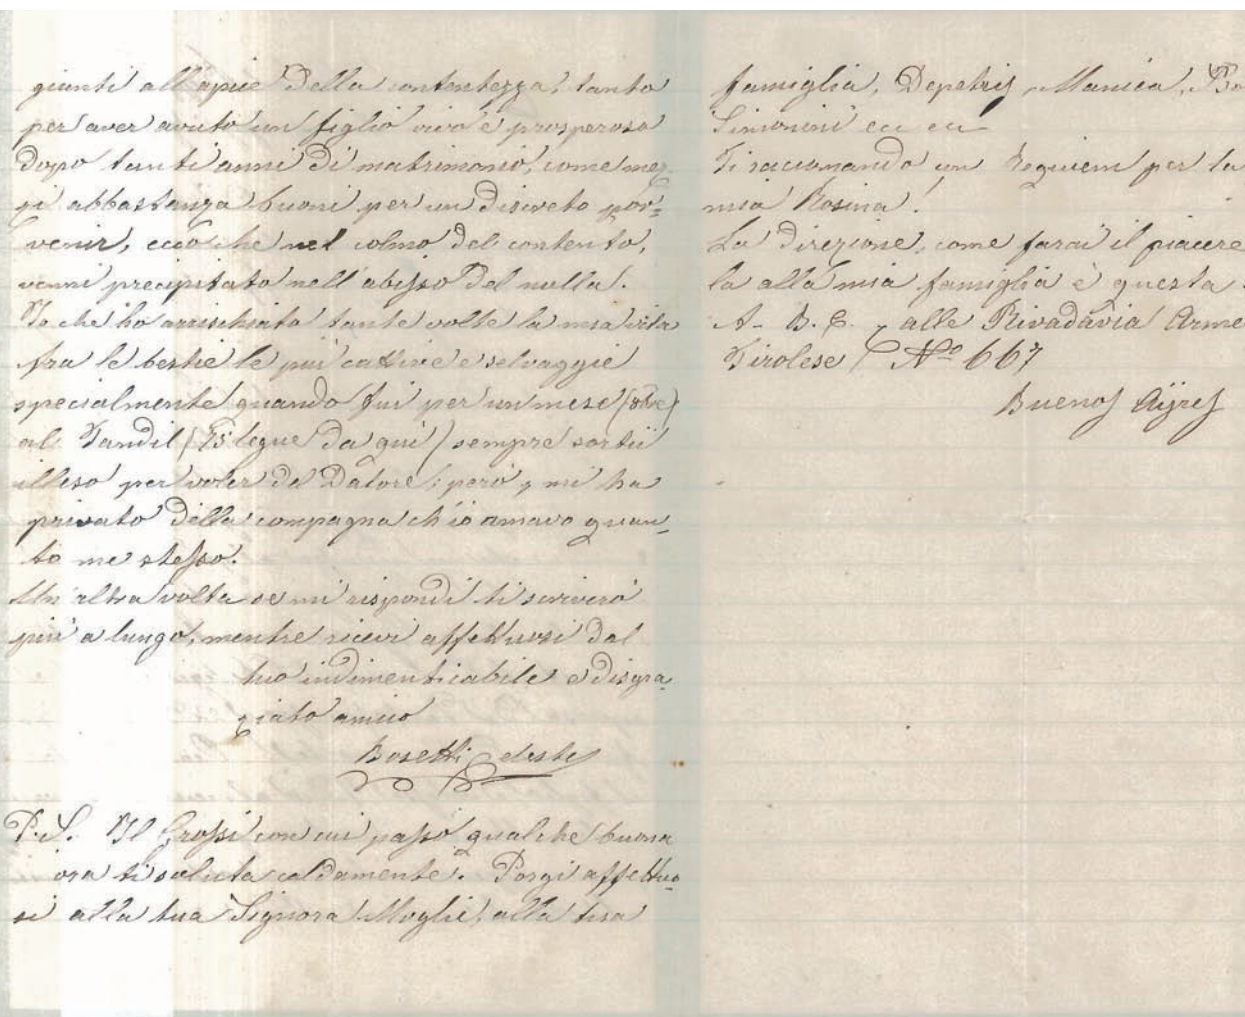 giunti all'apice della contentezza, tanto
per aver avuto un figlio vivo e prosperoso
dopo tanti anni di matrimonio, come mez-
zi abbastanza buoni per un discreto por-
venir, ecco che nel colmo del contento,
venni precipitato nell'abisso del nulla.
Io che ho arrischiato tante volte la mia vita
fra le bestie le più cattive e selvaggie
specialmente quando fui per un mese
al Tandil (75 legue da qui) sempre sortii
illeso per voler del Datore; però, mi ha
privato della compagna ch'io amavo quan-
to me stesso.
Un'altra volta se mi rispondi ti scriverò
più a lungo, mentre ricevi affettuosi dal
tuo indimenticabile e disgra-
ziato amico
Bosetti Celeste
P.S. Il Grossi con cui passo qualche buona
ora ti saluta caldamente. Porgi affettuo-
si alla tua Signora Moglie, alla tua
famiglia, Depetris, Manica, Bo
Simonini ecc ecc
Ti raccomando un Requiem per la
mia Rosina!
La direzione, come farai il piacere
la alla mia famiglia è questa.
A. B. C. alle Rivadavia Arme
Tirolese No 667
Buenos Aÿres